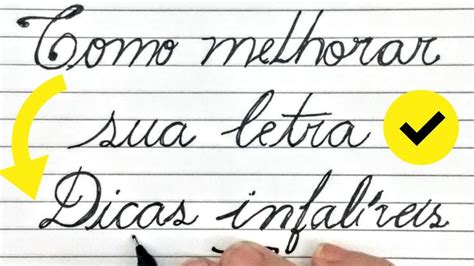 Como melhorar
sua letra
Dicas infalíveis